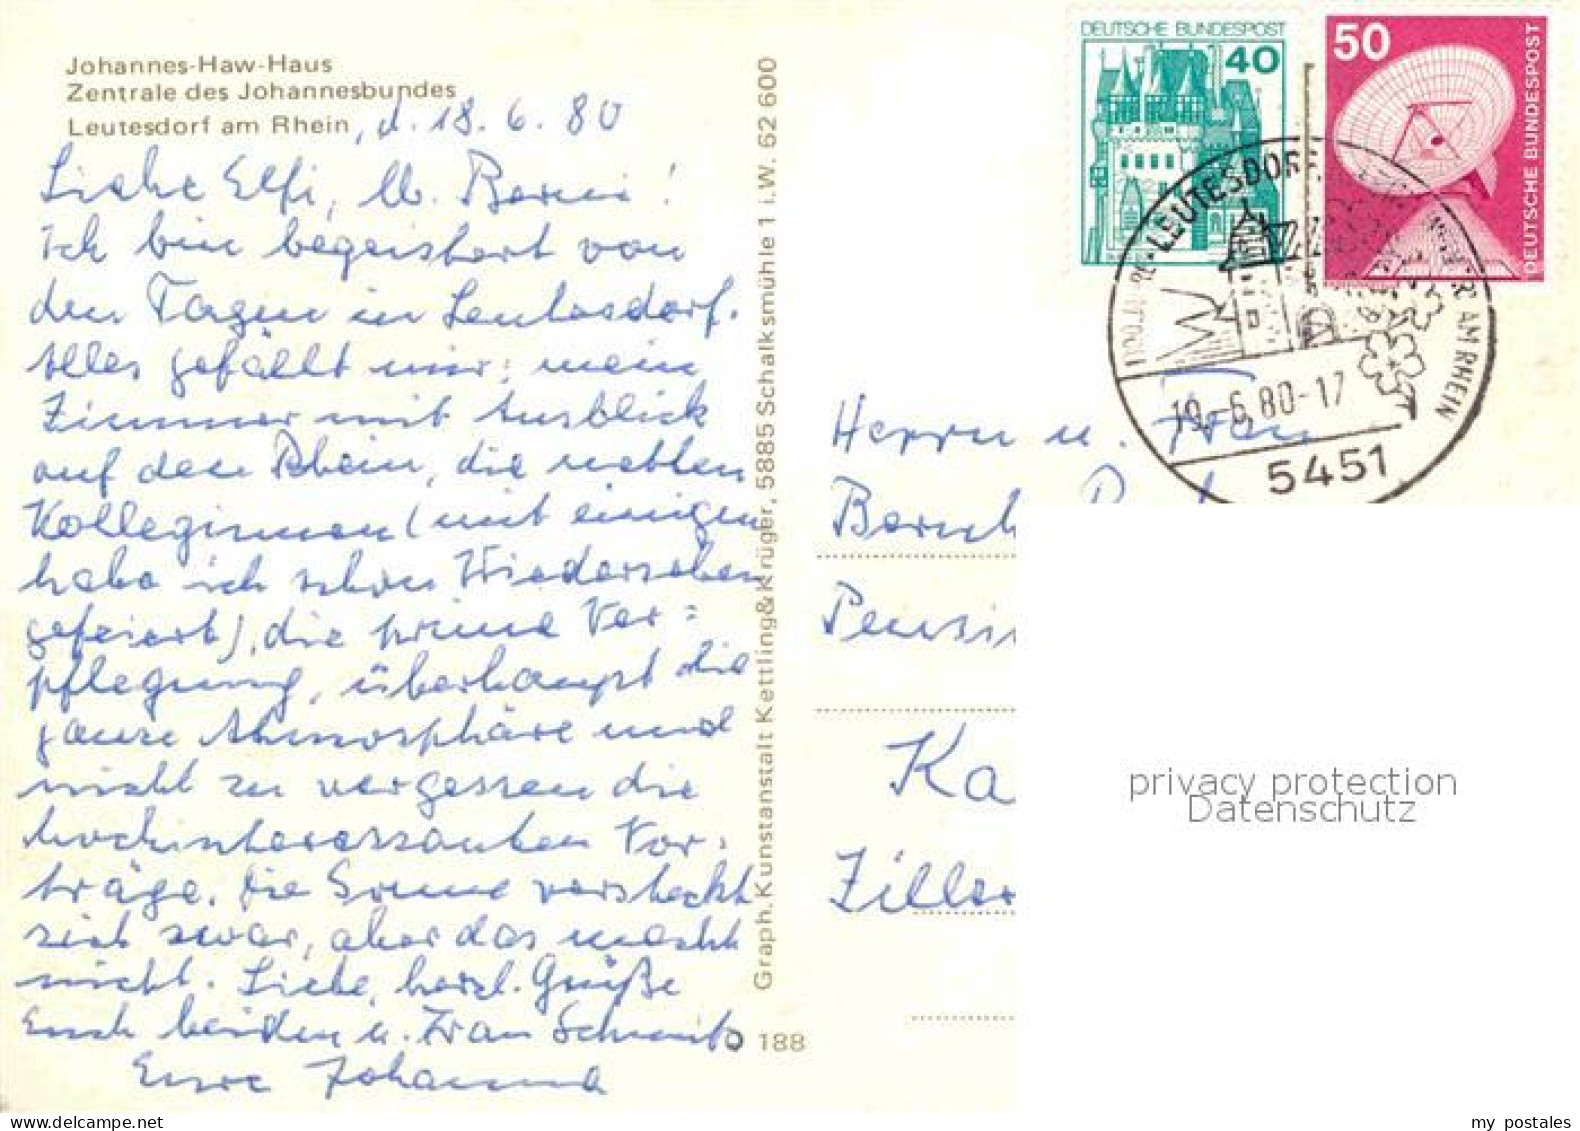 Johannes-Haw-Haus
Zentrale des Johannesbundes
Leutesdorf am Rhein, d. 18. 6. 80
Liebe Elfi, lb. Berni!
Ich bin begeistert von
den Tagen in Leutesdorf.
Alles gefällt mir: mein
Zimmer mit Ausblick
auf den Rhein, die netten
Kolleginnen (mit einigen
habe ich schon Wiedersehen
gefeiert), die prima Ver=
pflegung, überhaupt die
ganze Atmosphäre und
nicht zu vergessen die
hochinteressanten Vor=
träge. Die Sonne versteckt
sich zwar, aber das macht
nicht. Liebe, herzl. Grüße
Euch beiden u. Frau Schmitz
Eure Johanna
Graph. Kunstanstalt Kettling&Krüger, 5885 Schalksmühle 1 i.W. 62 600
188
DEUTSCHE BUNDESPOST
40
50
DEUTSCHE BUNDESPOST
LEUTESDORF
AM RHEIN
19.-6.80-17
5451
Herrn u. Frau
Pensi
Ka
Ziller
privacy protection
Datenschutz
my postales